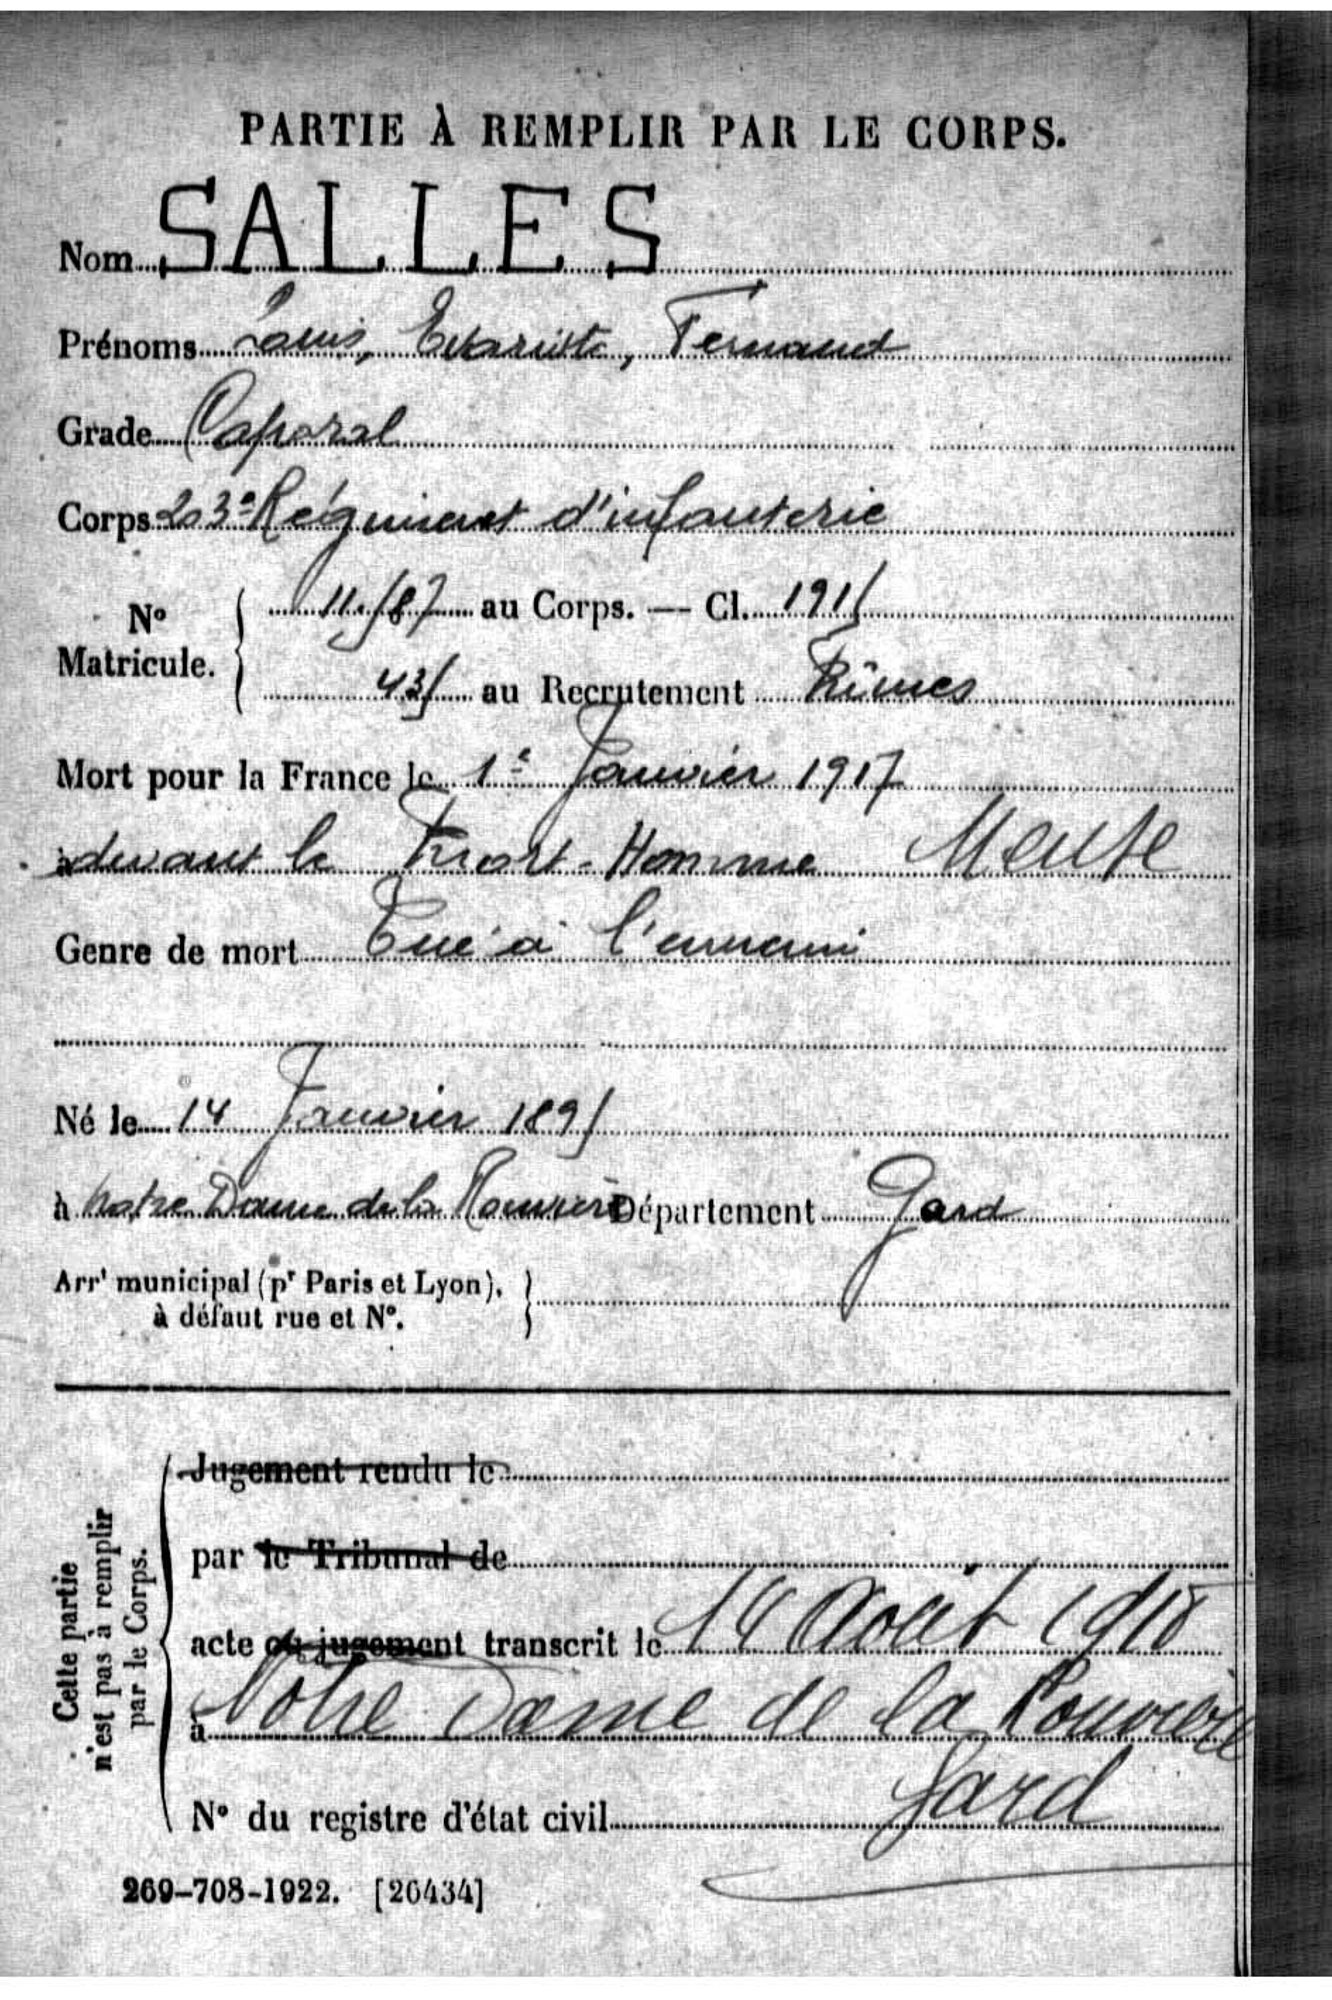 PARTIE À REMPLIR PAR LE CORPS.
Nom SALLES
Prénoms Louis, Evariste, Fernand
Grade Caporal
Corps 203e Régiment d'infanterie
No Matricule. { 11.587 au Corps. — Cl. 1915
435 au Recrutement Nîmes
Mort pour la France le 1er Janvier 1917
à devant le Mort-Homme Meuse
Genre de mort Tué à l'ennemi
Né le 14 Janvier 1895
à Notre Dame de la Rouvière Département Gard
Arrt municipal (pr Paris et Lyon),
à défaut rue et N°.
Cette partie
n'est pas à remplir
par le Corps.
Jugement rendu le
par le Tribunal de
acte ou jugement transcrit le 14 Août 1918
à Notre Dame de la Rouvière
Gard
N° du registre d'état civil
269-708-1922. [26434]